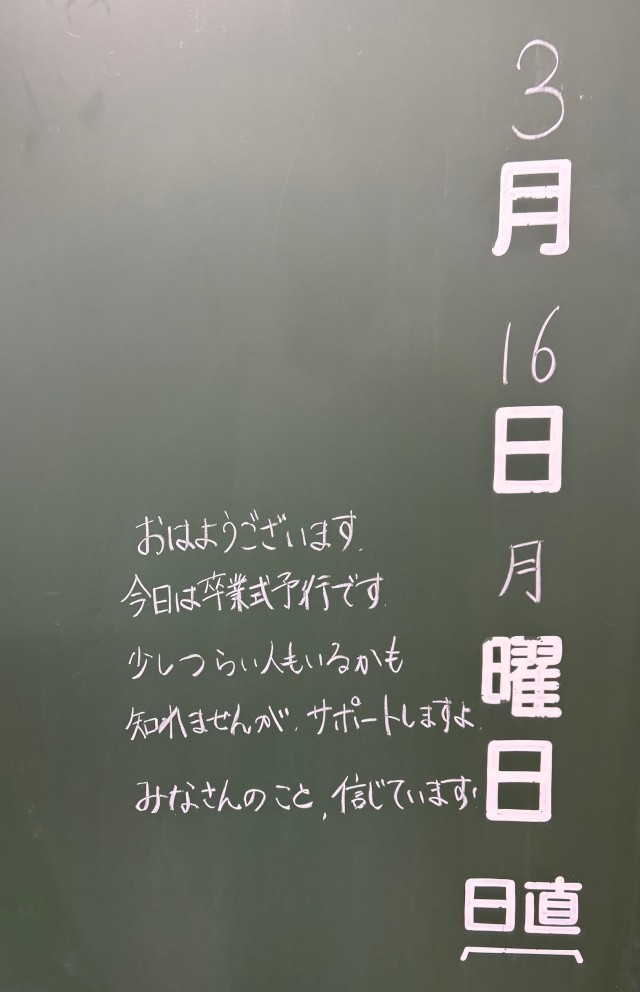 3月16日月曜日
日直
おはようございます.
今日は卒業式予行です.
少しつらい人もいるかも
知れませんが、サポートしますよ.
みなさんのこと、信じています.